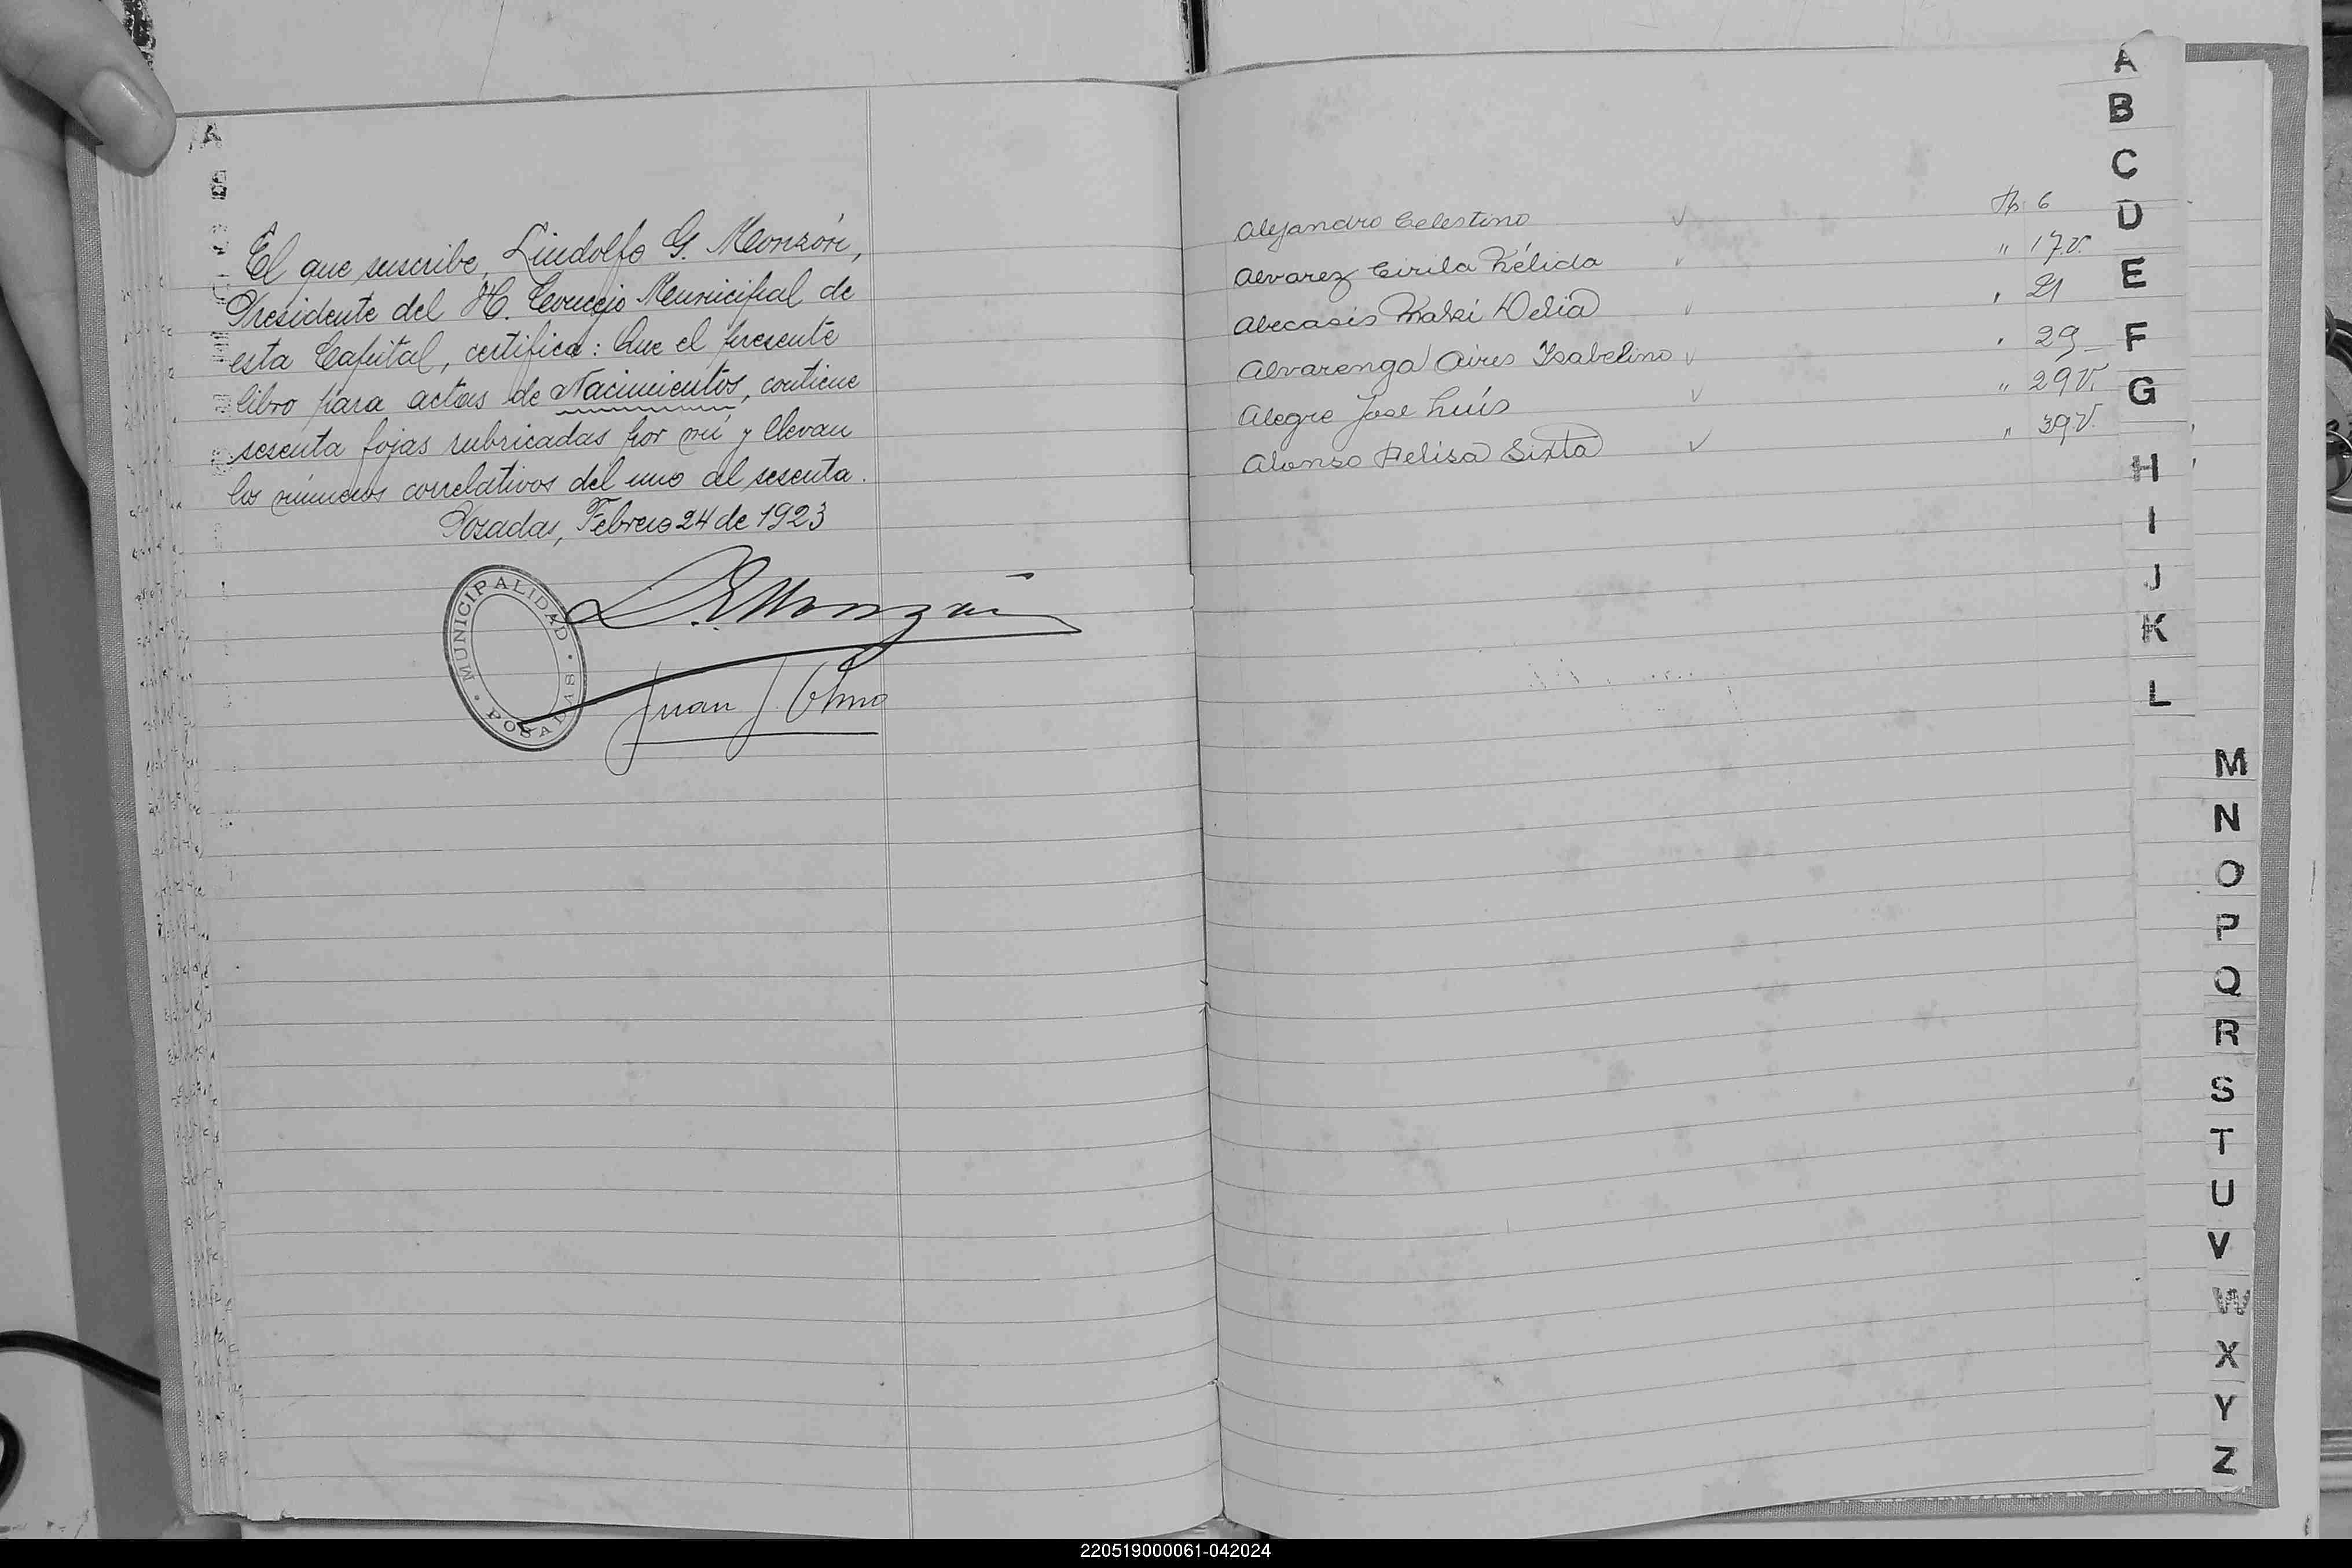 El que suscribe, Lindolfo G. Monzón,
Presidente del H. Concejo Municipal de
esta Capital, certifica: Que el presente
libro para actas de Nacimientos, contiene
sesenta fojas rubricadas por mí y llevan
los números correlativos del uno al sesenta.
Posadas, Febrero 24 de 1923
MUNICIPALIDAD · POSADAS ·
L. G. Monzón
Juan J.
Alejandro Celestino √ Fº 6
Alvarez Cirila Nélida √ " 17 v.
Abecasis Delia √ " 21
Alvarenga Aires Ysabelino √ " 29
Alegre José Luís √ " 29 V.
Alonso Felisa Sixta √ " 39 V.
A
B
C
D
E
F
G
H
I
J
K
L
M
N
O
P
Q
R
S
T
U
V
W
X
Y
Z
220519000061-042024